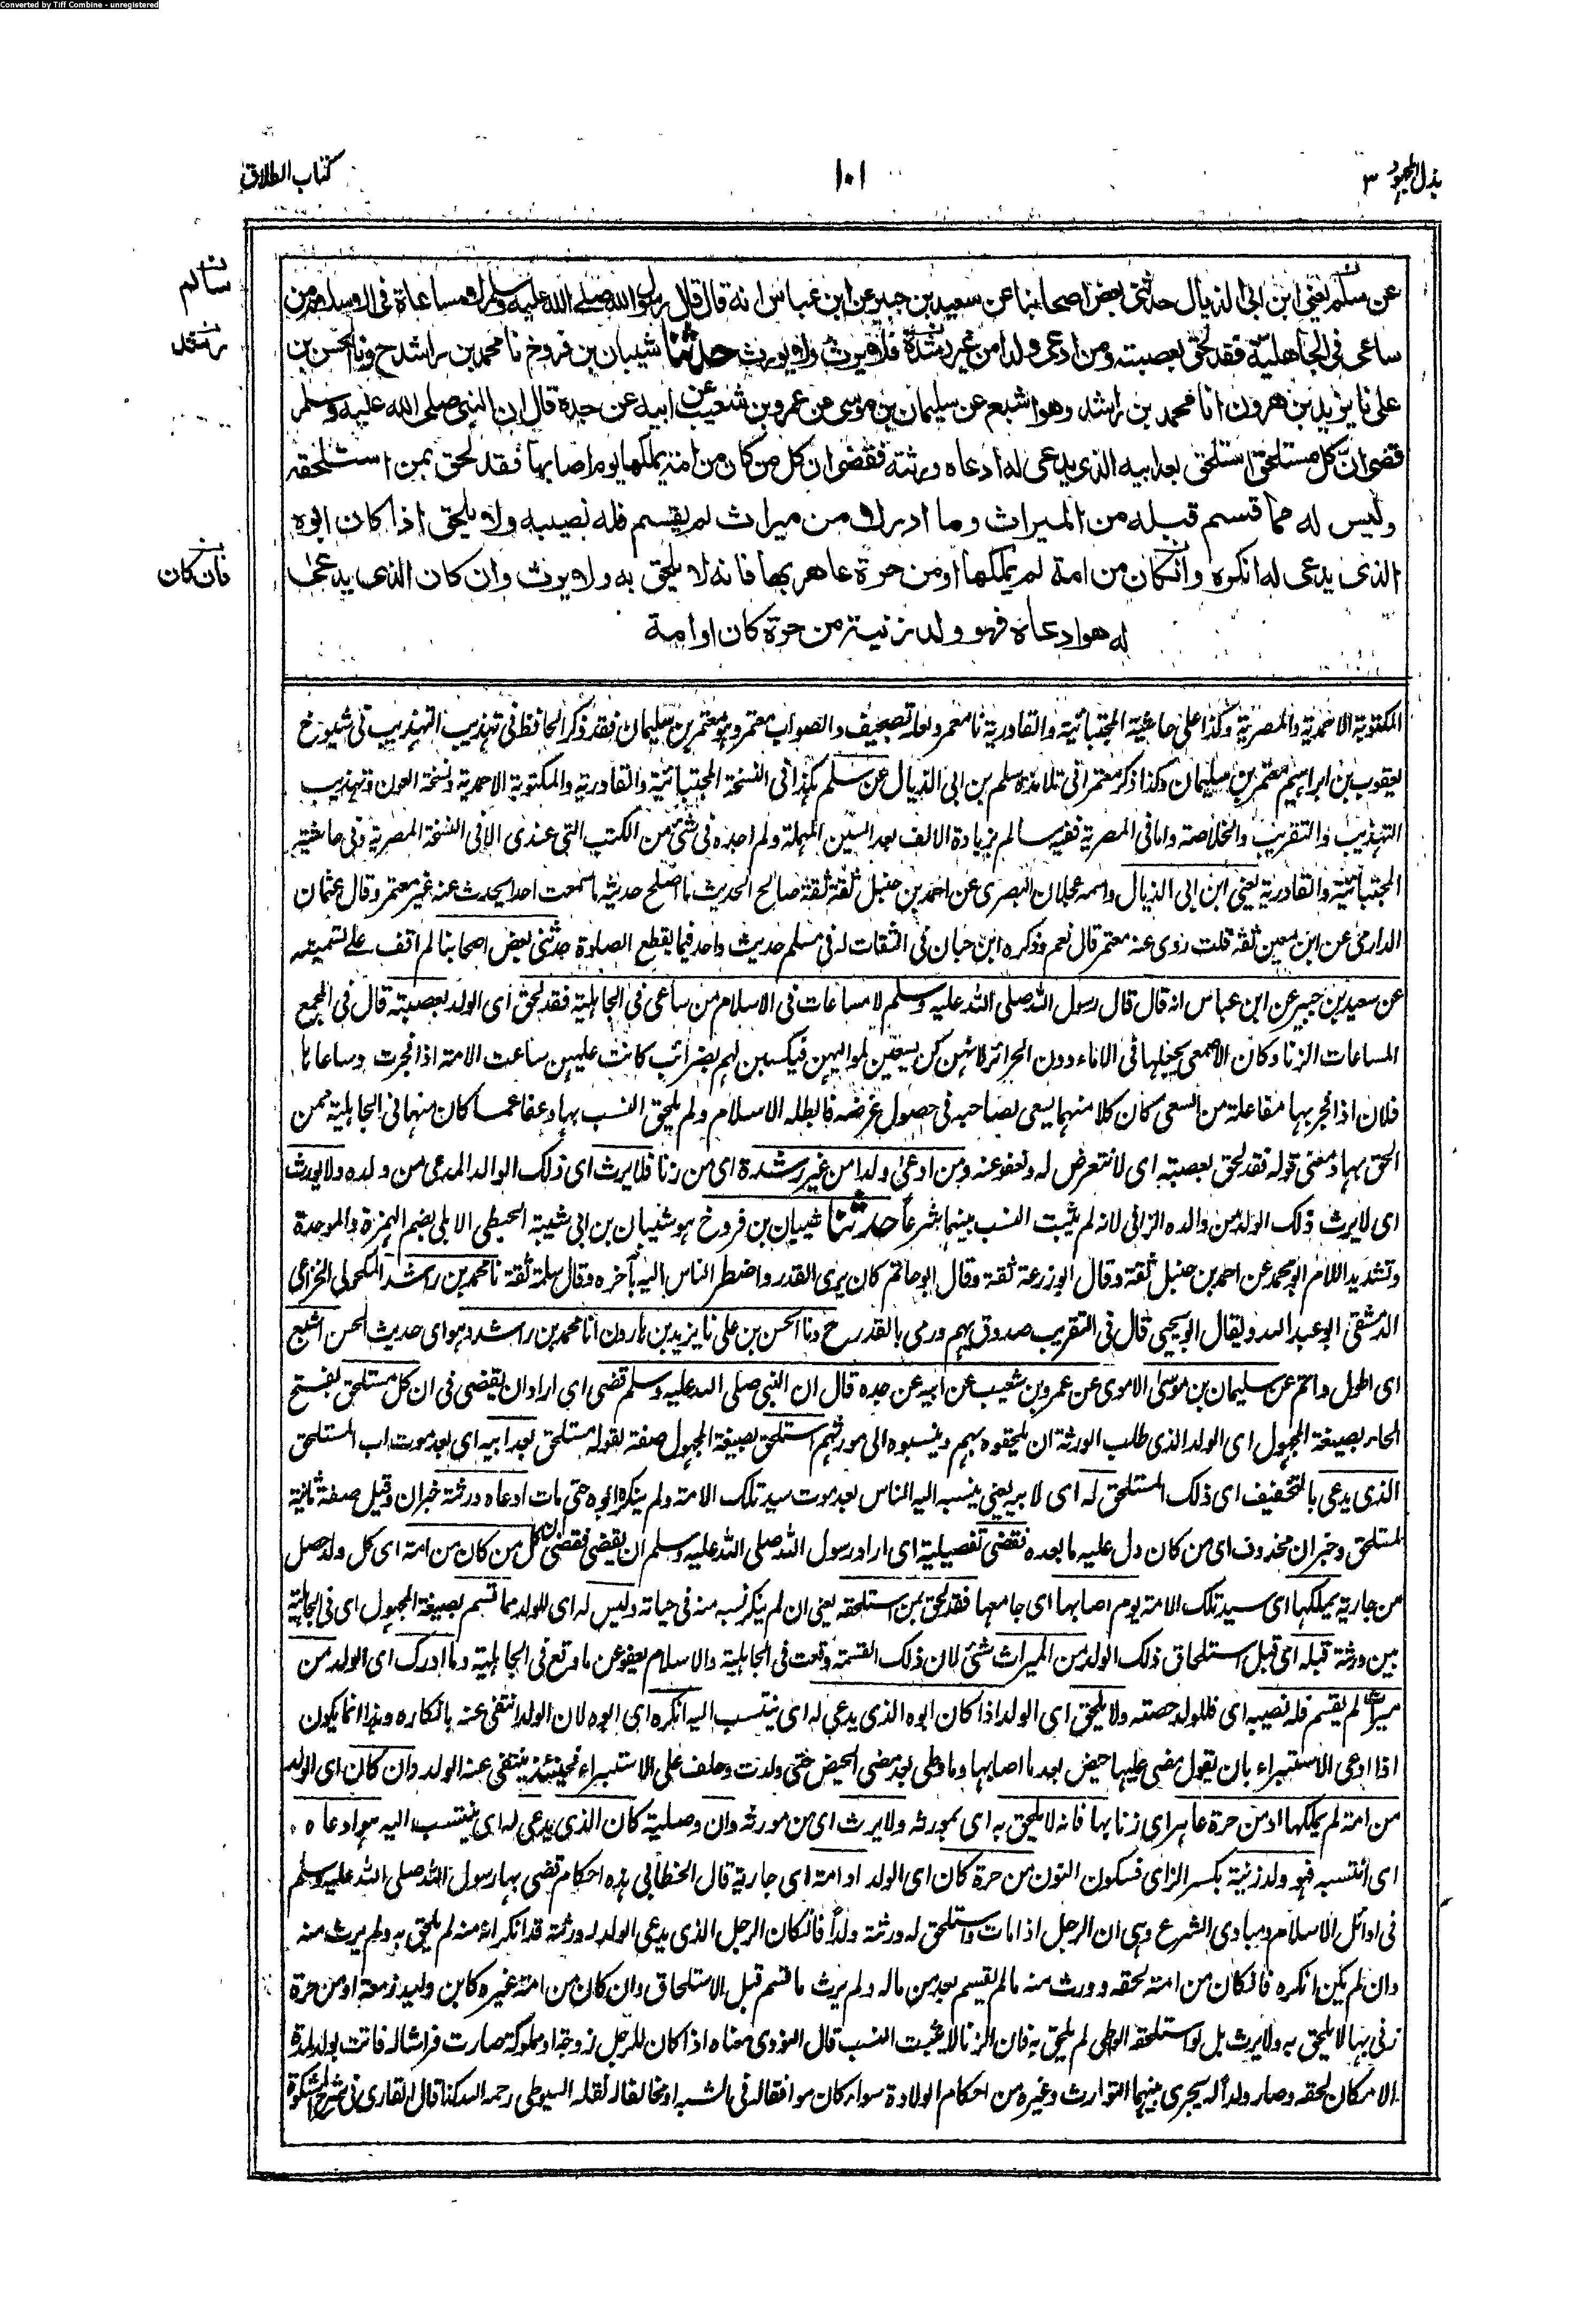 Converted by Tiff Combine - unregistered
بذل المجهود ٣
١٠١
كتاب الطلاق
عن سلم يعني ابن ابي الذيال حدثني بعض اصحابنا عن سعيد بن جبير عن ابن عباس انه قال قال رسول الله صلى الله عليه وسلم لا مساعاة في الاسلام من
ساعى في الجاهلية فقد لحق بعصبته ومن ادعى ولدا من غير رشدة فلا يرث ولا يورث حدثنا شيبان بن فروخ نا محمد بن راشد ح ونا الحسن بن
على نا يزيد بن هرون انا محمد بن راشد وهو اشبع عن سليمان بن موسى عن عمرو بن شعيب عن ابيه عن جده قال ان النبي صلى الله عليه وسلم
قضى ان كل مستلحق استلحق بعد ابيه الذي يدعى له ادعاه ورثته فقضى ان كل من كان من امة يملكها يوم اصابها فقد لحق بمن استلحقه
وليس له مما قسم قبله من الميراث وما ادرك من ميراث لم يقسم فله نصيبه ولا يلحق اذا كان ابوه
الذي يدعى له انكره وان كان من امة لم يملكها او من حرة عاهر بها فانه لا يلحق به ولا يرث وان كان الذي يدعى
له هو ادعاه فهو ولد زنية من حرة كان او امة
سالم
راشد
فان كان
المكتوبة الاحمدية والمصرية وكذا على حاشية المجتبائية والقادرية نا معمر ولعله تصحيف والصواب معتمر وهو معتمر بن سليمان فقد ذكر الحافظ في تهذيب التهذيب في شيوخ
يعقوب بن ابراهيم معتمر بن سليمان وكذا ذكر معتمرا في تلامذة سلم بن ابي الذيال عن سلم هكذا في النسخة المجتبائية والقادرية والمكتوبة الاحمدية ونسخة العون وتهذيب
التهذيب والتقريب والخلاصة واما في المصرية ففيه سالم بزيادة الالف بعد السين المهملة ولم اجده في شئ من الكتب التي عندى الا في النسخة المصرية وفي حاشية
المجتبائية والقادرية يعني ابن ابي الذيال واسمه عجلان البصرى عن احمد بن حنبل ثقة ثقة صالح الحديث ما اصلح حديثه ما سمعت احدا يحدث عنه غير معتمر وقال عثمان
الدارمي عن ابن معين ثقة قلت روى عنه معتمر قال نعم وذكره ابن حبان في الثقات له في مسلم حديث واحد فيما يقطع الصلوة حدثني بعض اصحابنا لم اقف على تسميته
عن سعيد بن جبير عن ابن عباس انه قال قال رسول الله صلى الله عليه وسلم لا مساعات في الاسلام من ساعى في الجاهلية فقد لحق اى الولد بعصبته قال في المجمع
المساعات الزنا وكان الاصمعي يجعلها في الاماء دون الحرائر لانهن كن يسعين لمواليهن فيكسبن لهم بضرائب كانت عليهن ساعت الامة اذا فجرت وساعاها
فلان اذا فجر بها مفاعلة من السعى كان كلا منهما يسعى لصاحبه في حصول غرضه فابطله الاسلام ولم يلحق النسب بها وعفا عما كان منها في الجاهلية ممن
الحق بها ومعنى قوله فقد لحق بعصبته اى لا نتعرض له ونعفو عنه ومن ادعى ولدا من غير رشدة اى من زنا فلا يرث اى ذلك الوالد المدعى من ولده ولا يورث
اى لا يرث ذلك الولد من والده الزانى لانه لم يثبت النسب بينهما شرعا حدثنا شيبان بن فروخ هو شيبان بن ابي شيبة الحبطى الابلى بضم الهمزة والموحدة
وتشديد اللام ابو محمد عن احمد بن حنبل ثقة وقال ابو زرعة ثقة وقال ابو حاتم كان يرى القدر واضطر الناس اليه بآخره وقال سلمة ثقة نا محمد بن راشد المكحولى الخزاعى
الدمشقى ابو عبد الله ويقال ابو يحيى قال في التقريب صدوق يهم ورمى بالقدر ح ونا الحسن بن على نا يزيد بن هارون انا محمد بن راشد وهو اى حديث الحسن اشبع
اى اطول واتم عن سليمان بن موسى الاموى عن عمرو بن شعيب عن ابيه عن جده قال ان النبي صلى الله عليه وسلم قضى اى اراد ان يقضى في ان كل مستلحق بفتح
الحاء بصيغة المجهول اى الولد الذي طلب الورثة ان يلحقوه بهم وينسبوه الى مورثهم استلحق بصيغة المجهول صفة لقوله مستلحق بعد ابيه اى بعد موت اب المستلحق
الذي يدعى بالتخفيف اى ذلك المستلحق له اى لابيه يعنى ينسبه اليه الناس بعد موت سيد تلك الامة ولم ينكر ابوه حتى مات ادعاه ورثته خبر ان وقيل صفة ثانية
لمستلحق وخبر ان محذوف اى من كان دل عليه ما بعده فقضى تفصيلية اى اراد رسول الله صلى الله عليه وسلم ان يقضى فقضى ان كل من كان من امة اى كل ولد حصل
من جارية يملكها اى سيد تلك الامة يوم اصابها اى جامعها فقد لحق بمن استلحقه يعنى ان لم ينكر نسبه منه في حياته وليس له اى للولد مما قسم بصيغة المجهول اى في الجاهلية
بين ورثة قبله اى قبل استلحاق ذلك الولد من الميراث شئ لان ذلك القسمة وقعت في الجاهلية والاسلام يعفو عن ما وقع في الجاهلية وما ادرك اى الولد من
ميراث لم يقسم فله نصيبه اى فللولد حصته ولا يلحق اى الولد اذا كان ابوه الذي يدعى له اى ينتسب اليه انكره اى ابوه لان الولد انتفى عنه بانكاره وهذا انما يكون
اذا ادعى الاستبراء بان يقول مضى عليها حيض بعد ما اصابها وما وطى بعد مضى الحيض حتى ولدت وحلف على الاستبراء فحينئذ ينتفى عنه الولد وان كان اى الولد
من امة لم يملكها او من حرة عاهر اى زنا بها فانه لا يلحق به اى بمورثه ولا يرث اى من مورثه وان وصلية كان الذي يدعى له اى ينتسب اليه هو ادعاه
اى انتسبه فهو ولد زنية بكسر الزاى فسكون النون من حرة كان اى الولد او امة اى جارية قال الخطابي هذه احكام قضى بها رسول الله صلى الله عليه وسلم
في اوائل الاسلام ومبادى الشرع وهى ان الرجل اذا مات واستلحق له ورثته ولدا فان كان الرجل الذي يدعى الولد له ورثته قد انكر انه منه لم يلحق به ولم يرث منه
وان لم يكن انكره فان كان من امته لحقه وورث منه ما لم يقسم بعد من ماله ولم يرث ما قسم قبل الاستلحاق وان كان من امة غيره كابن وليدة زمعة او من حرة
زنى بها لا يلحق به ولا يرث بل لو استلحقه الواطى لم يلحق به فان الزنا لا يثبت النسب قال النووى معناه اذا كان للرجل زوجة او مملوكة صارت فراشا له فاتت بولد لمدة
الامكان لحقه وصار ولدا له يجرى بينهما التوارث وغيره من احكام الولادة سواء كان موافقا له في الشبه او مخالفا له نقله السيوطى رحمه الله كذا قال القارى في شرح المشكوة